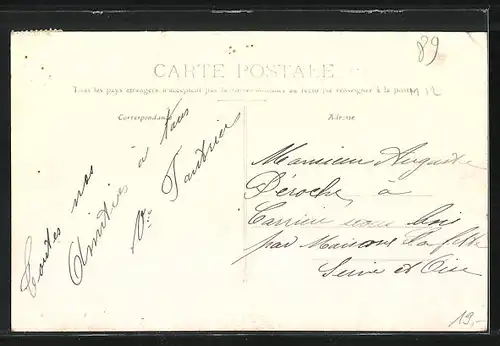 89
CARTE POSTALE
Tous les pays étrangers n'acceptent pas la correspondance au recto (se renseigner à la poste)
Correspondance
Adresse
Toutes nos
Amitiés à tous
Monsieur Auguste
Déroche à
Carrière sous bois
par Maisons Laffitte
Seine et Oise
19,-